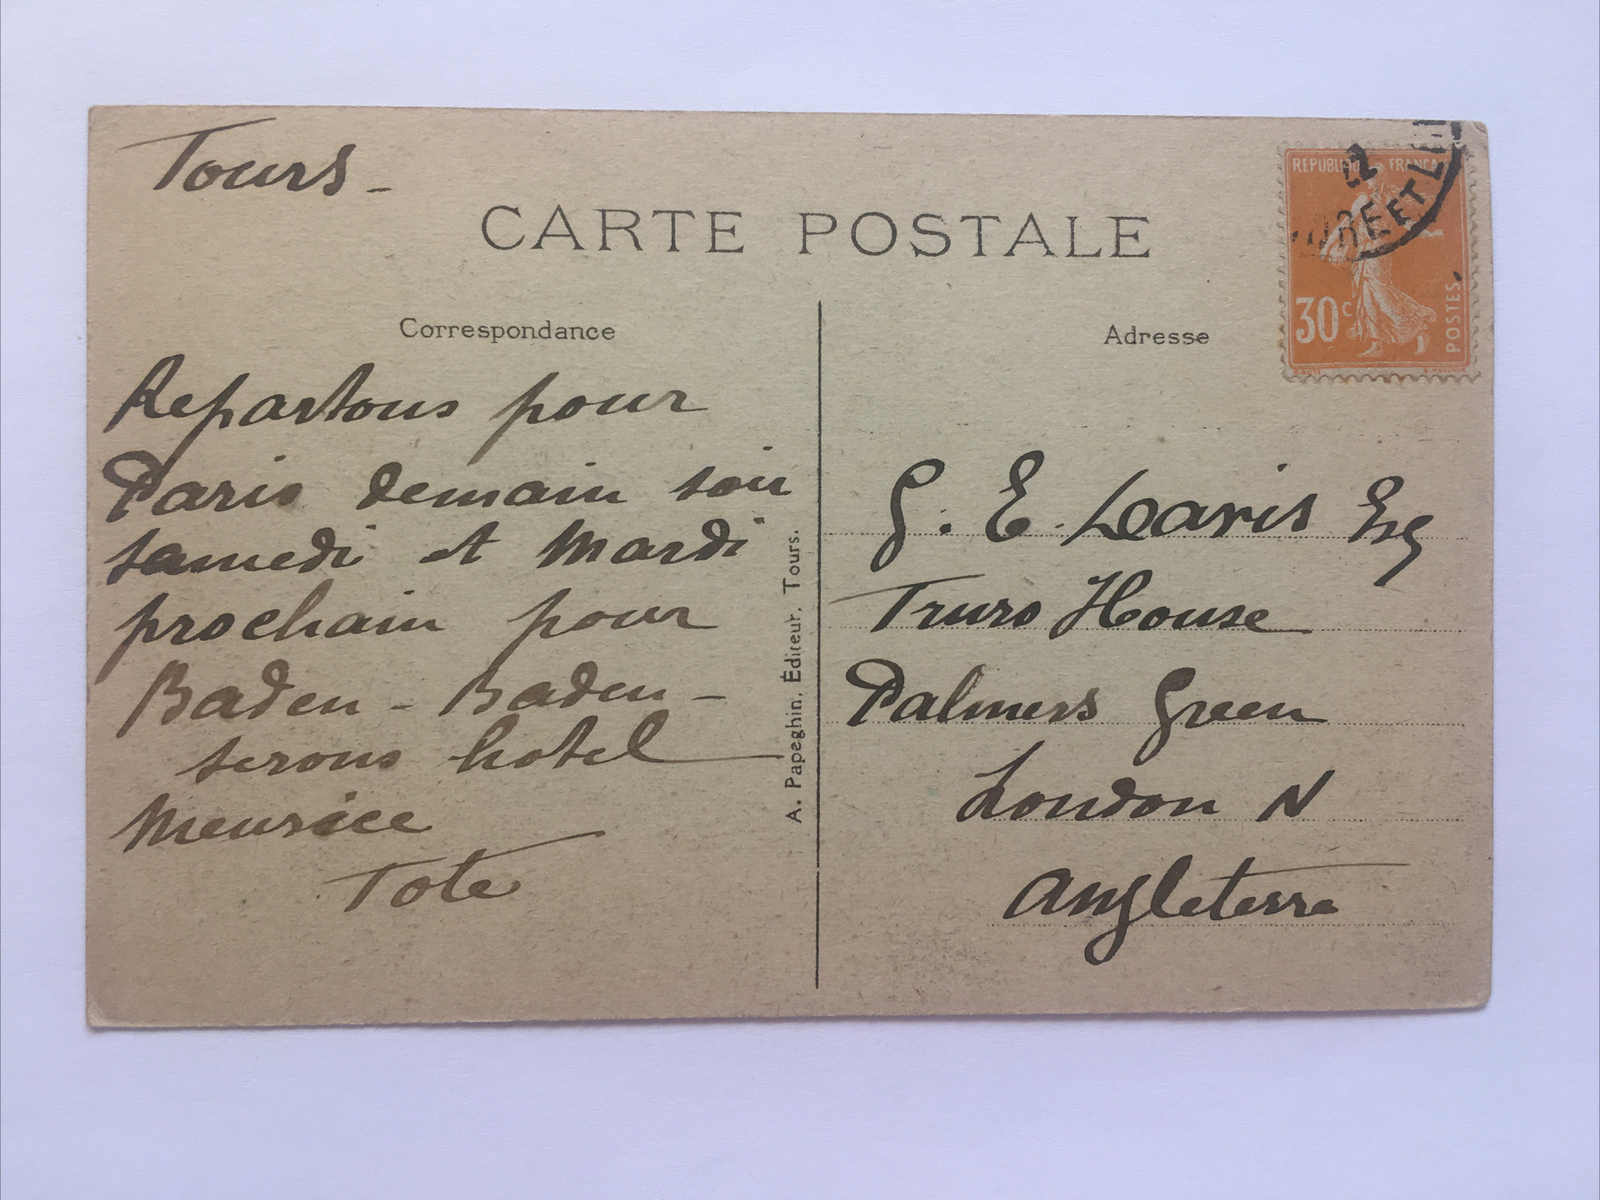 Tours -
CARTE POSTALE
Correspondance
Repartons pour
Paris demain soir
samedi et Mardi
prochain pour
Baden - Baden -
serons hotel
Meurice
Tote
A. Papeghin, Éditeur, Tours.
Adresse
REPUBLIQUE FRANCAISE
30c
POSTES
22
INDRE ET LOIRE
G. E. Lavis Esq
Truro House
Palmers Green
London N
Angleterre